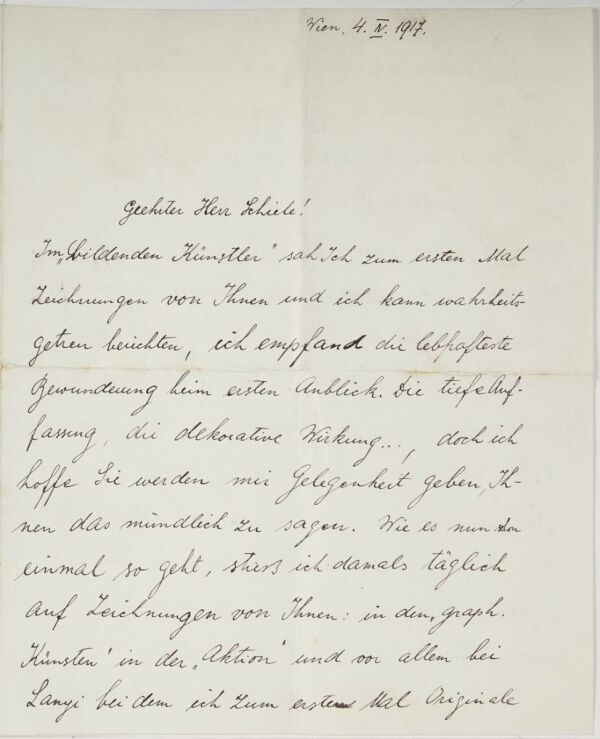 Wien, 4. IV. 1917.
Geehrter Herr Schiele!
Im „bildenden Künstler" sah Ich zum ersten Mal
Zeichnungen von Ihnen und ich kann wahrheits-
getreu berichten, ich empfand die lebhafteste
Bewunderung beim ersten Anblick. Die tiefe Auf-
fassung, die dekorative Wirkung..., doch ich
hoffe Sie werden mir Gelegenheit geben, Ih-
nen das mündlich zu sagen. Wie es nun
einmal so geht, stieß ich damals täglich
auf Zeichnungen von Ihnen: in den „graph.
Künsten" in der „Aktion" und vor allem bei
Lanyi bei dem ich zum ersten Mal Originale